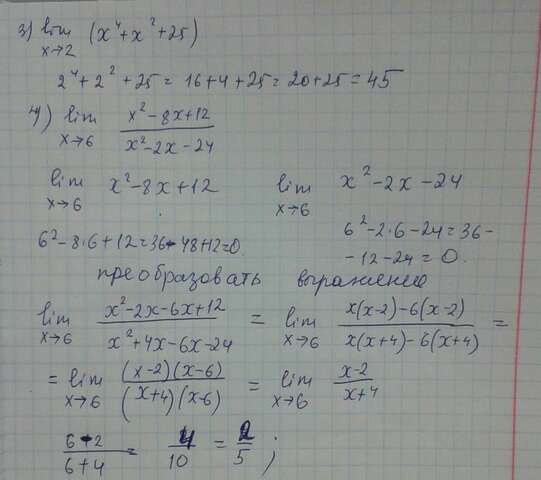 3) lim x→2 (x⁴+x²+25)
2⁴+2²+25=16+4+25=20+25=45
4) lim x→6 (x²-8x+12)/(x²-2x-24)
lim x→6 x²-8x+12
lim x→6 x²-2x-24
6²-8·6+12=36-48+12=0.
6²-2·6-24=36-
-12-24=0.
преобразовать выражение
lim x→6 (x²-2x-6x+12)/(x²+4x-6x-24) = lim x→6 (x(x-2)-6(x-2))/(x(x+4)-6(x+4)) =
= lim x→6 ((x-2)(x-6))/((x+4)(x-6)) = lim x→6 (x-2)/(x+4)
(6-2)/(6+4) = 4/10 = 2/5;